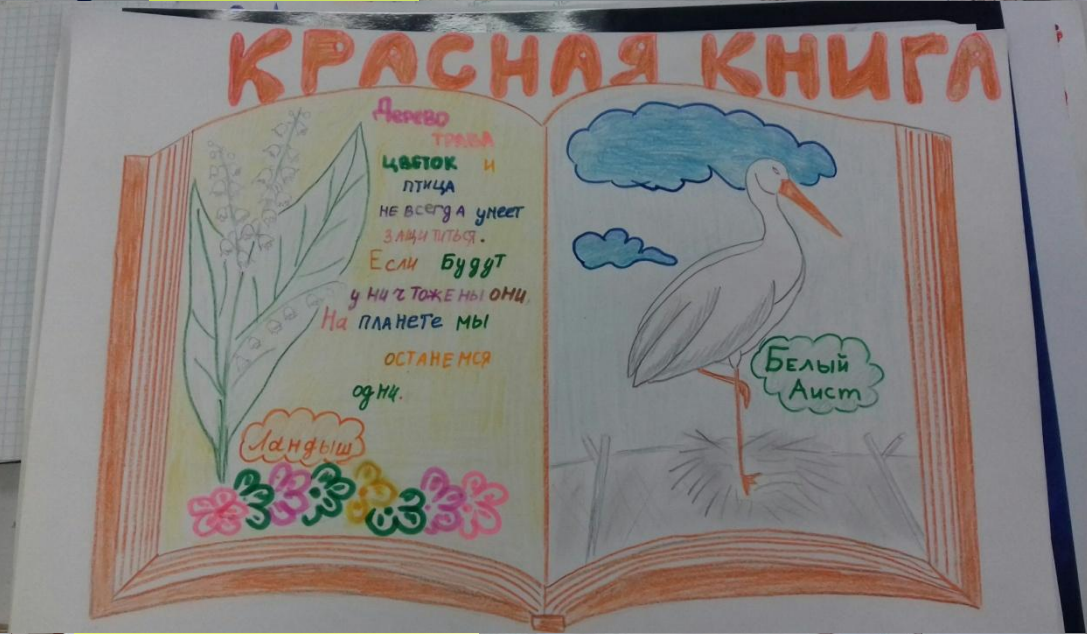 КРАСНАЯ КНИГА
Дерево
ТРАВА
ЦВЕТОК и
ПТИЦА
НЕ ВСЕГДА УМЕЕТ
ЗАЩИТИТЬСЯ.
Если БУДУТ
УНИЧТОЖЕНЫ ОНИ,
На ПЛАНЕТЕ МЫ
ОСТАНЕМСЯ
ОДНИ.
Ландыш
БЕЛЫЙ
Аист